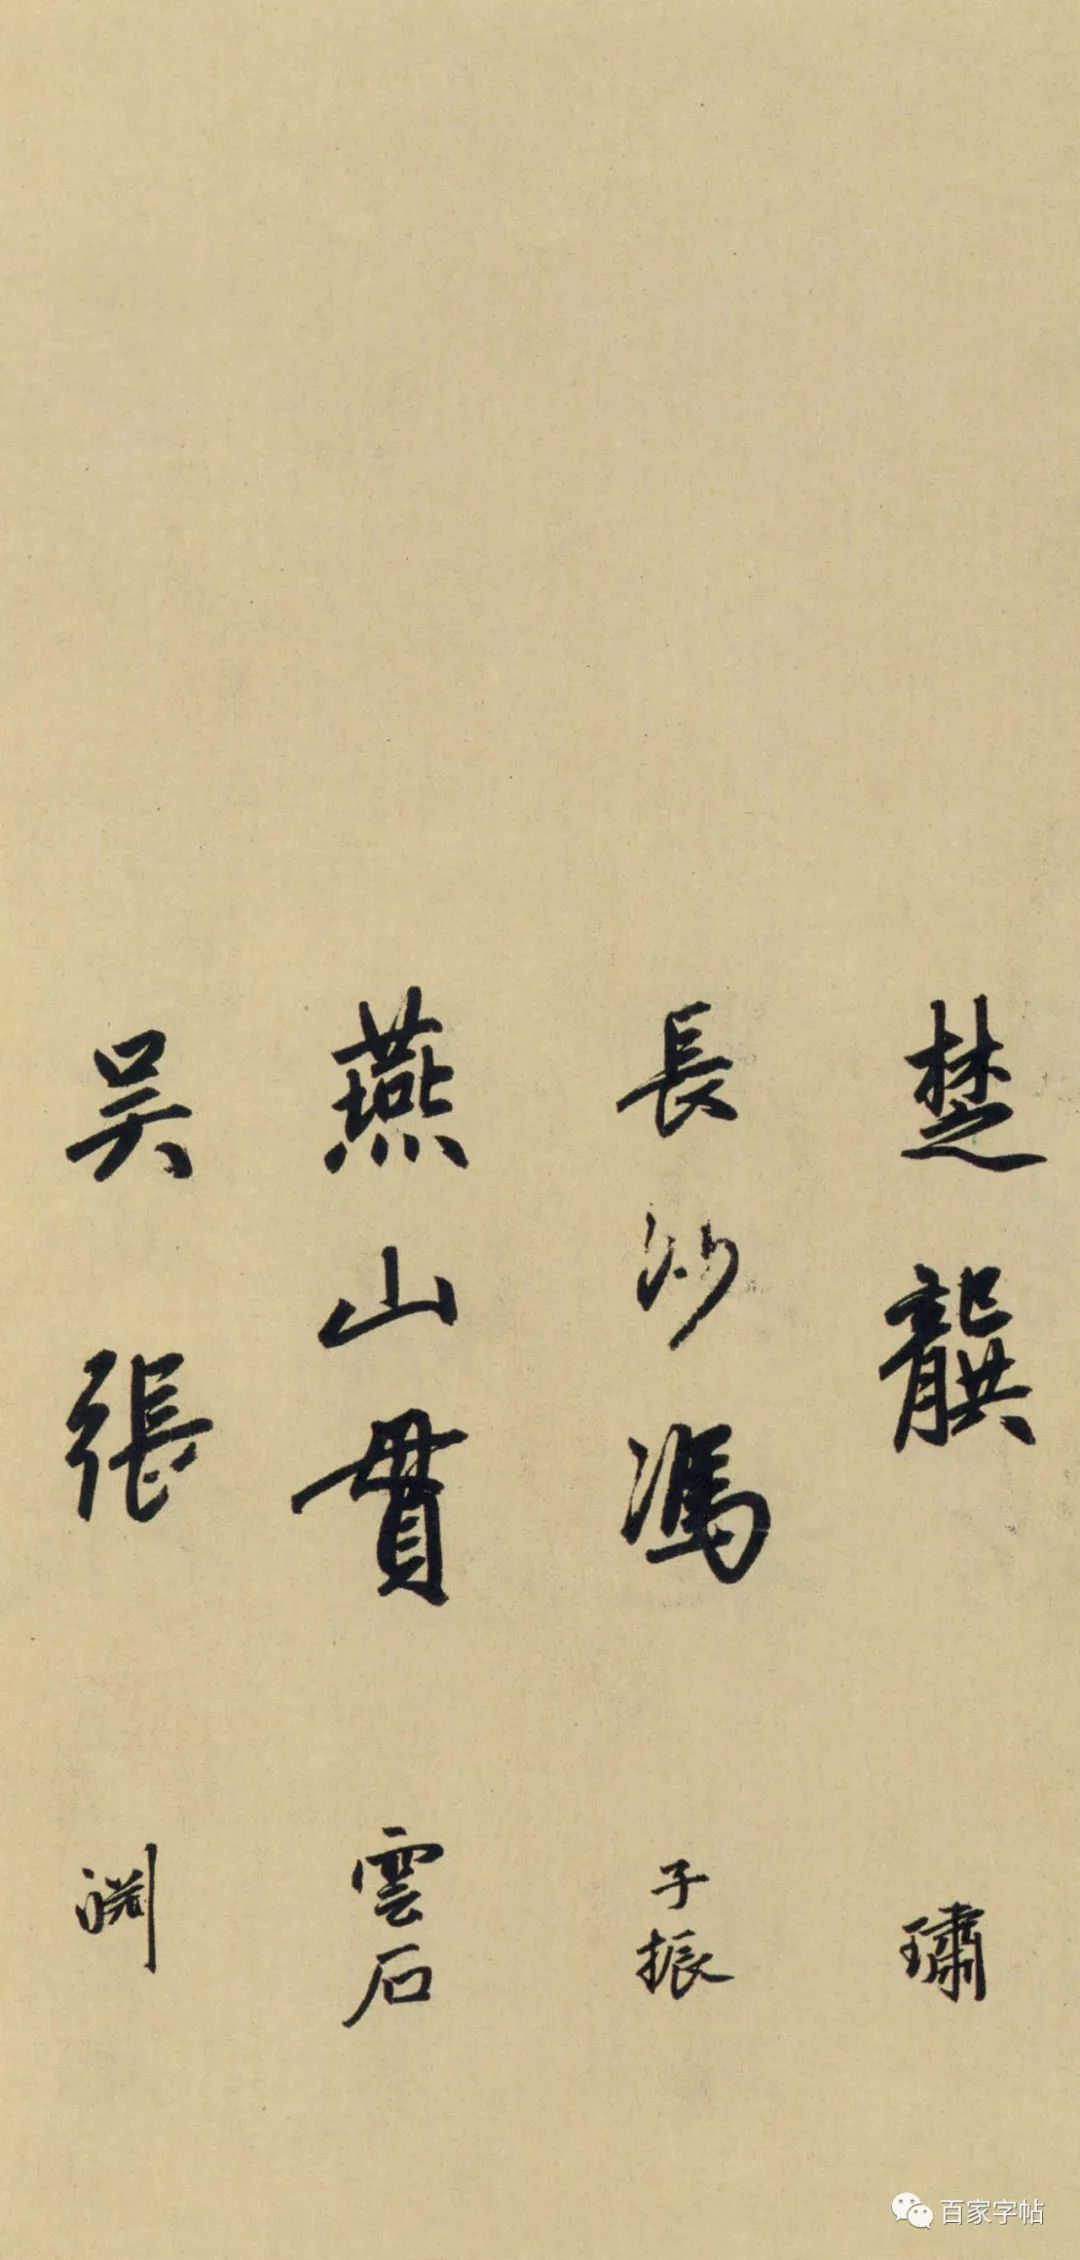 楚龔 璛
長沙馮 子振
燕山貫 雲石
吴張 渊
百家字帖